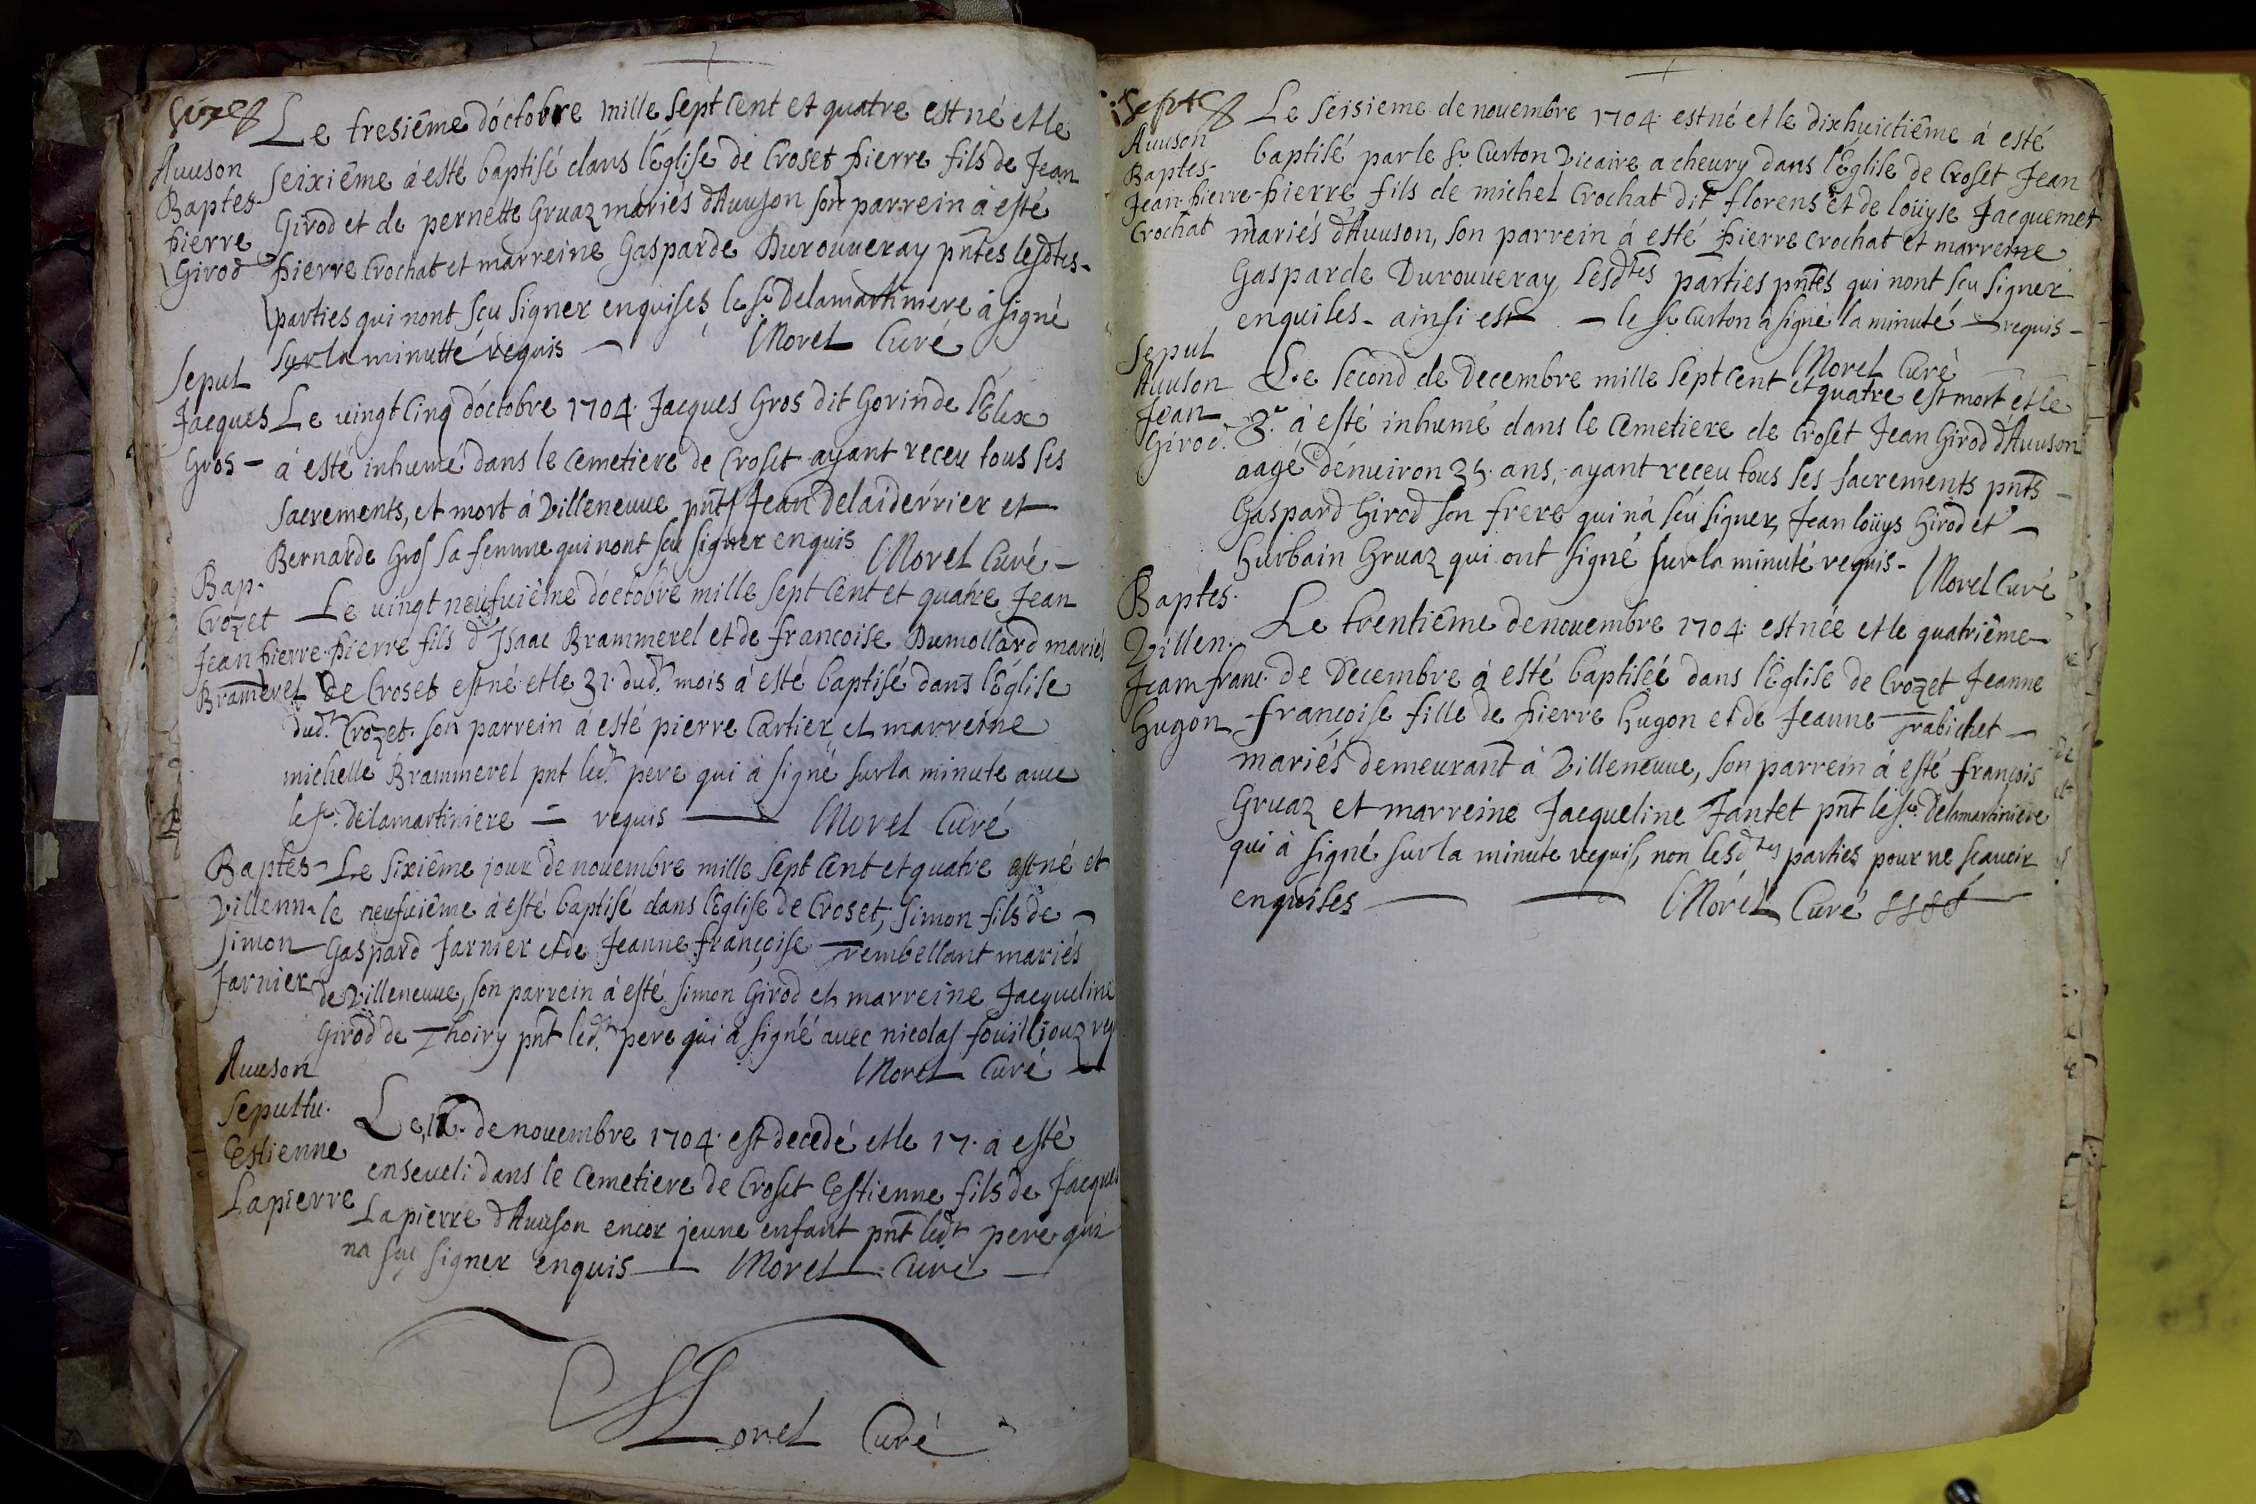 Le tresiême d'octobre mille sept cent et quatre est né et le
Avuson
seixiême à esté baptisé dans l'Église de Croset pierre fils de Jean
Baptes-
Girod et de pernette Gruaz mariés d'Avuson son parrein à esté
pierre
Girod
pierre Crochat et marreine Gasparde Durouveray pñtes lesdtes-
parties qui nont scu signer enquises le sr Delamartiniere à signé
sur la minutte requis — Morel Curé
Sepul
Jacques
Gros -
Le vingt cinq d'octobre 1704. Jacques Gros dit Gorin de l'Élex
à esté inhumé dans le cemetiere de Croset ayant receu tous ses
sacrements, et mort à Villeneuve pñt Jean Delaiderrier et
Bernarde Gros sa femme qui nont scu signer enquis Morel Curé -
Bap.
Crozet
Jean pierre
Bramerel
Le vingt neufviême d'octobre mille sept cent et quatre Jean
pierre fils d'Isaac Brammerel et de francoise Dumollard mariés
de Croset est né et le 31. dudt mois à esté baptisé dans l'Église
dudt Crozet. son parrein à esté pierre Cartier et marreine
michelle Brammerel pnt ledt pere qui à signé sur la minute avec
le sr. delamartiniere = requis — Morel Curé
Baptes-
Villenn.
Simon
Jarnier
Le sixiême jour de novembre mille sept cent et quatre est né et
le neufviême à esté baptisé dans l'Église de Croset, Simon fils de -
Gaspard Jarnier et de Jeanne françoise Trembellant mariés
de Villeneuve, son parrein à esté simon Girod et marreine Jacqueline
Girod de Thoiry pnt ledt pere qui à signé avec nicolas fouilliouz req
Morel Curé
Avuson
Sepultu.
Estienne
Lapierre
Le de novembre 1704. est decedé et le 17. à esté
enseveli dans le cemetiere de Croset Estienne fils de Jacques
Lapierre d'Avuson encor jeune enfant pñt ledt pere qui
na scu signer enquis — Morel Curé —
Morel Curé
Avuson
Baptes-
Jean-pierre
Crochat
Le seisieme de novembre 1704. est né et le dixhuictiême à esté
baptisé par le sr Curton Vicaire a chevry dans l'Église de Croset Jean
pierre fils de michel Crochat dit florens et de loüyse Jacquemet
mariés d'Avuson, son parrein à esté pierre Crochat et marreine
Gasparde Durouveray, lesdtes parties pñtes qui nont scu signer
enquises - ainsi est — le sr Curton à signé la minuté — requis -
Morel Curé
Sepul
Avuson
Jean
Girod.
Le second de Decembre mille sept cent et quatre est mort et le
3.e à esté inhumé dans le cemetiere de Croset Jean Girod d'Avuson
aagé d'environ 35. ans, ayant receu tous ses sacrements pñts
Gaspard Girod son frere qui n'à scu signer, Jean loüys Girod et -
hurbain Gruaz qui ont signé sur la minuté requis -
Morel Curé
Baptes.
Villen.
Jean franc.
Hugon
Le trentiême de novembre 1704. est née et le quatriême
de Decembre à esté baptisée dans l'Église de Crozet Jeanne
françoise fille de pierre hugon et de Jeanne Trabichet —
mariés demeurant à Villeneuve, son parrein à esté françois
Gruaz et marreine Jacqueline Jantet pñt le sr. delamartiniere
qui à signé sur la minute requis, non lesdtes parties pour ne scavoir
enquises — — Morel Curé